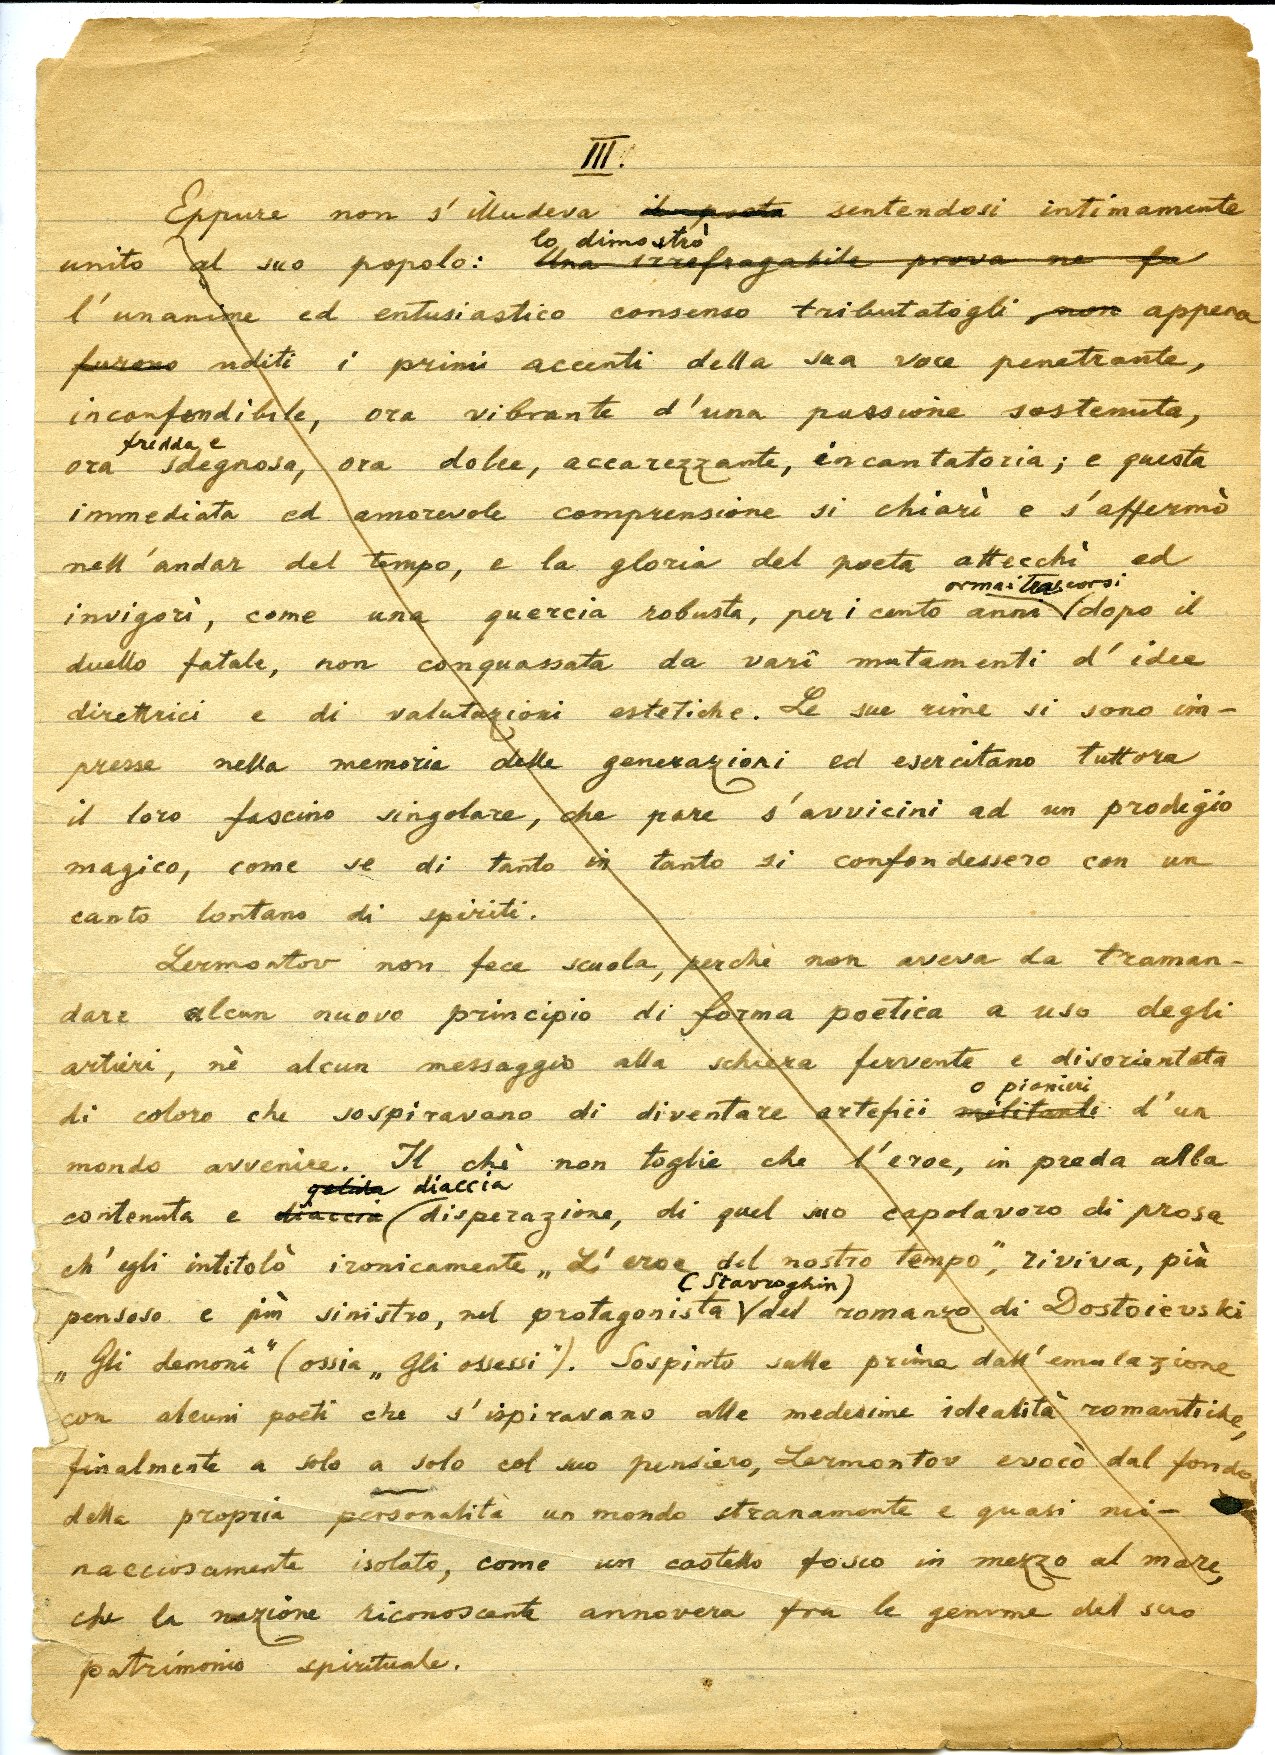 III.
Eppure non s'illudeva il poeta sentendosi intimamente
lo dimostrò
unito al suo popolo: Una irrefragabile prova ne fu
l'unanime ed entusiastico consenso tributatogli, non appena
furono uditi i primi accenti della sua voce penetrante,
inconfondibile, ora vibrante d'una passione sostenuta,
fredda e
ora sdegnosa, ora dolce, accarezzante, incantatoria; e questa
immediata ed amorevole comprensione si chiarì e s'affermò
nell'andar del tempo, e la gloria del poeta attecchì ed
ormai trascorsi
invigorì, come una quercia robusta, per i cento anni dopo il
duello fatale, non conquassata da varî mutamenti d'idee
direttrici e di valutazioni estetiche. Le sue rime si sono im-
presse nella memoria delle generazioni ed esercitano tuttora
il loro fascino singolare, che pare s'avvicini ad un prodigio
magico, come se di tanto in tanto si confondessero con un
canto lontano di spiriti.
Lermontov non fece scuola, perchè non aveva da traman-
dare alcun nuovo principio di forma poetica a uso degli
artieri, nè alcun messaggio alla schiera fervente e disorientata
o pionieri
di coloro che sospiravano di diventare artefici militanti d'un
mondo avvenire. Il chè non toglie che l'eroe, in preda alla
gelida diaccia
contenuta e diaccia disperazione, di quel suo capolavoro di prosa
ch'egli intitolò ironicamente „L'eroe del nostro tempo", riviva, più
(Stavroghin)
pensoso e più sinistro, nel protagonista del romanzo di Dostoievski
„Gli demonî" (ossia „Gli ossessi"). Sospinto sulle prime dall'emulazione
con alcuni poeti che s'ispiravano alle medesime idealità romantiche,
finalmente a solo a solo col suo pensiero, Lermontov evocò dal fondo
della propria personalità un mondo stranamente e quasi mi-
nacciosamente isolato, come un castello fosco in mezzo al mare,
che la nazione riconoscente annovera fra le gemme del suo
patrimonio spirituale.